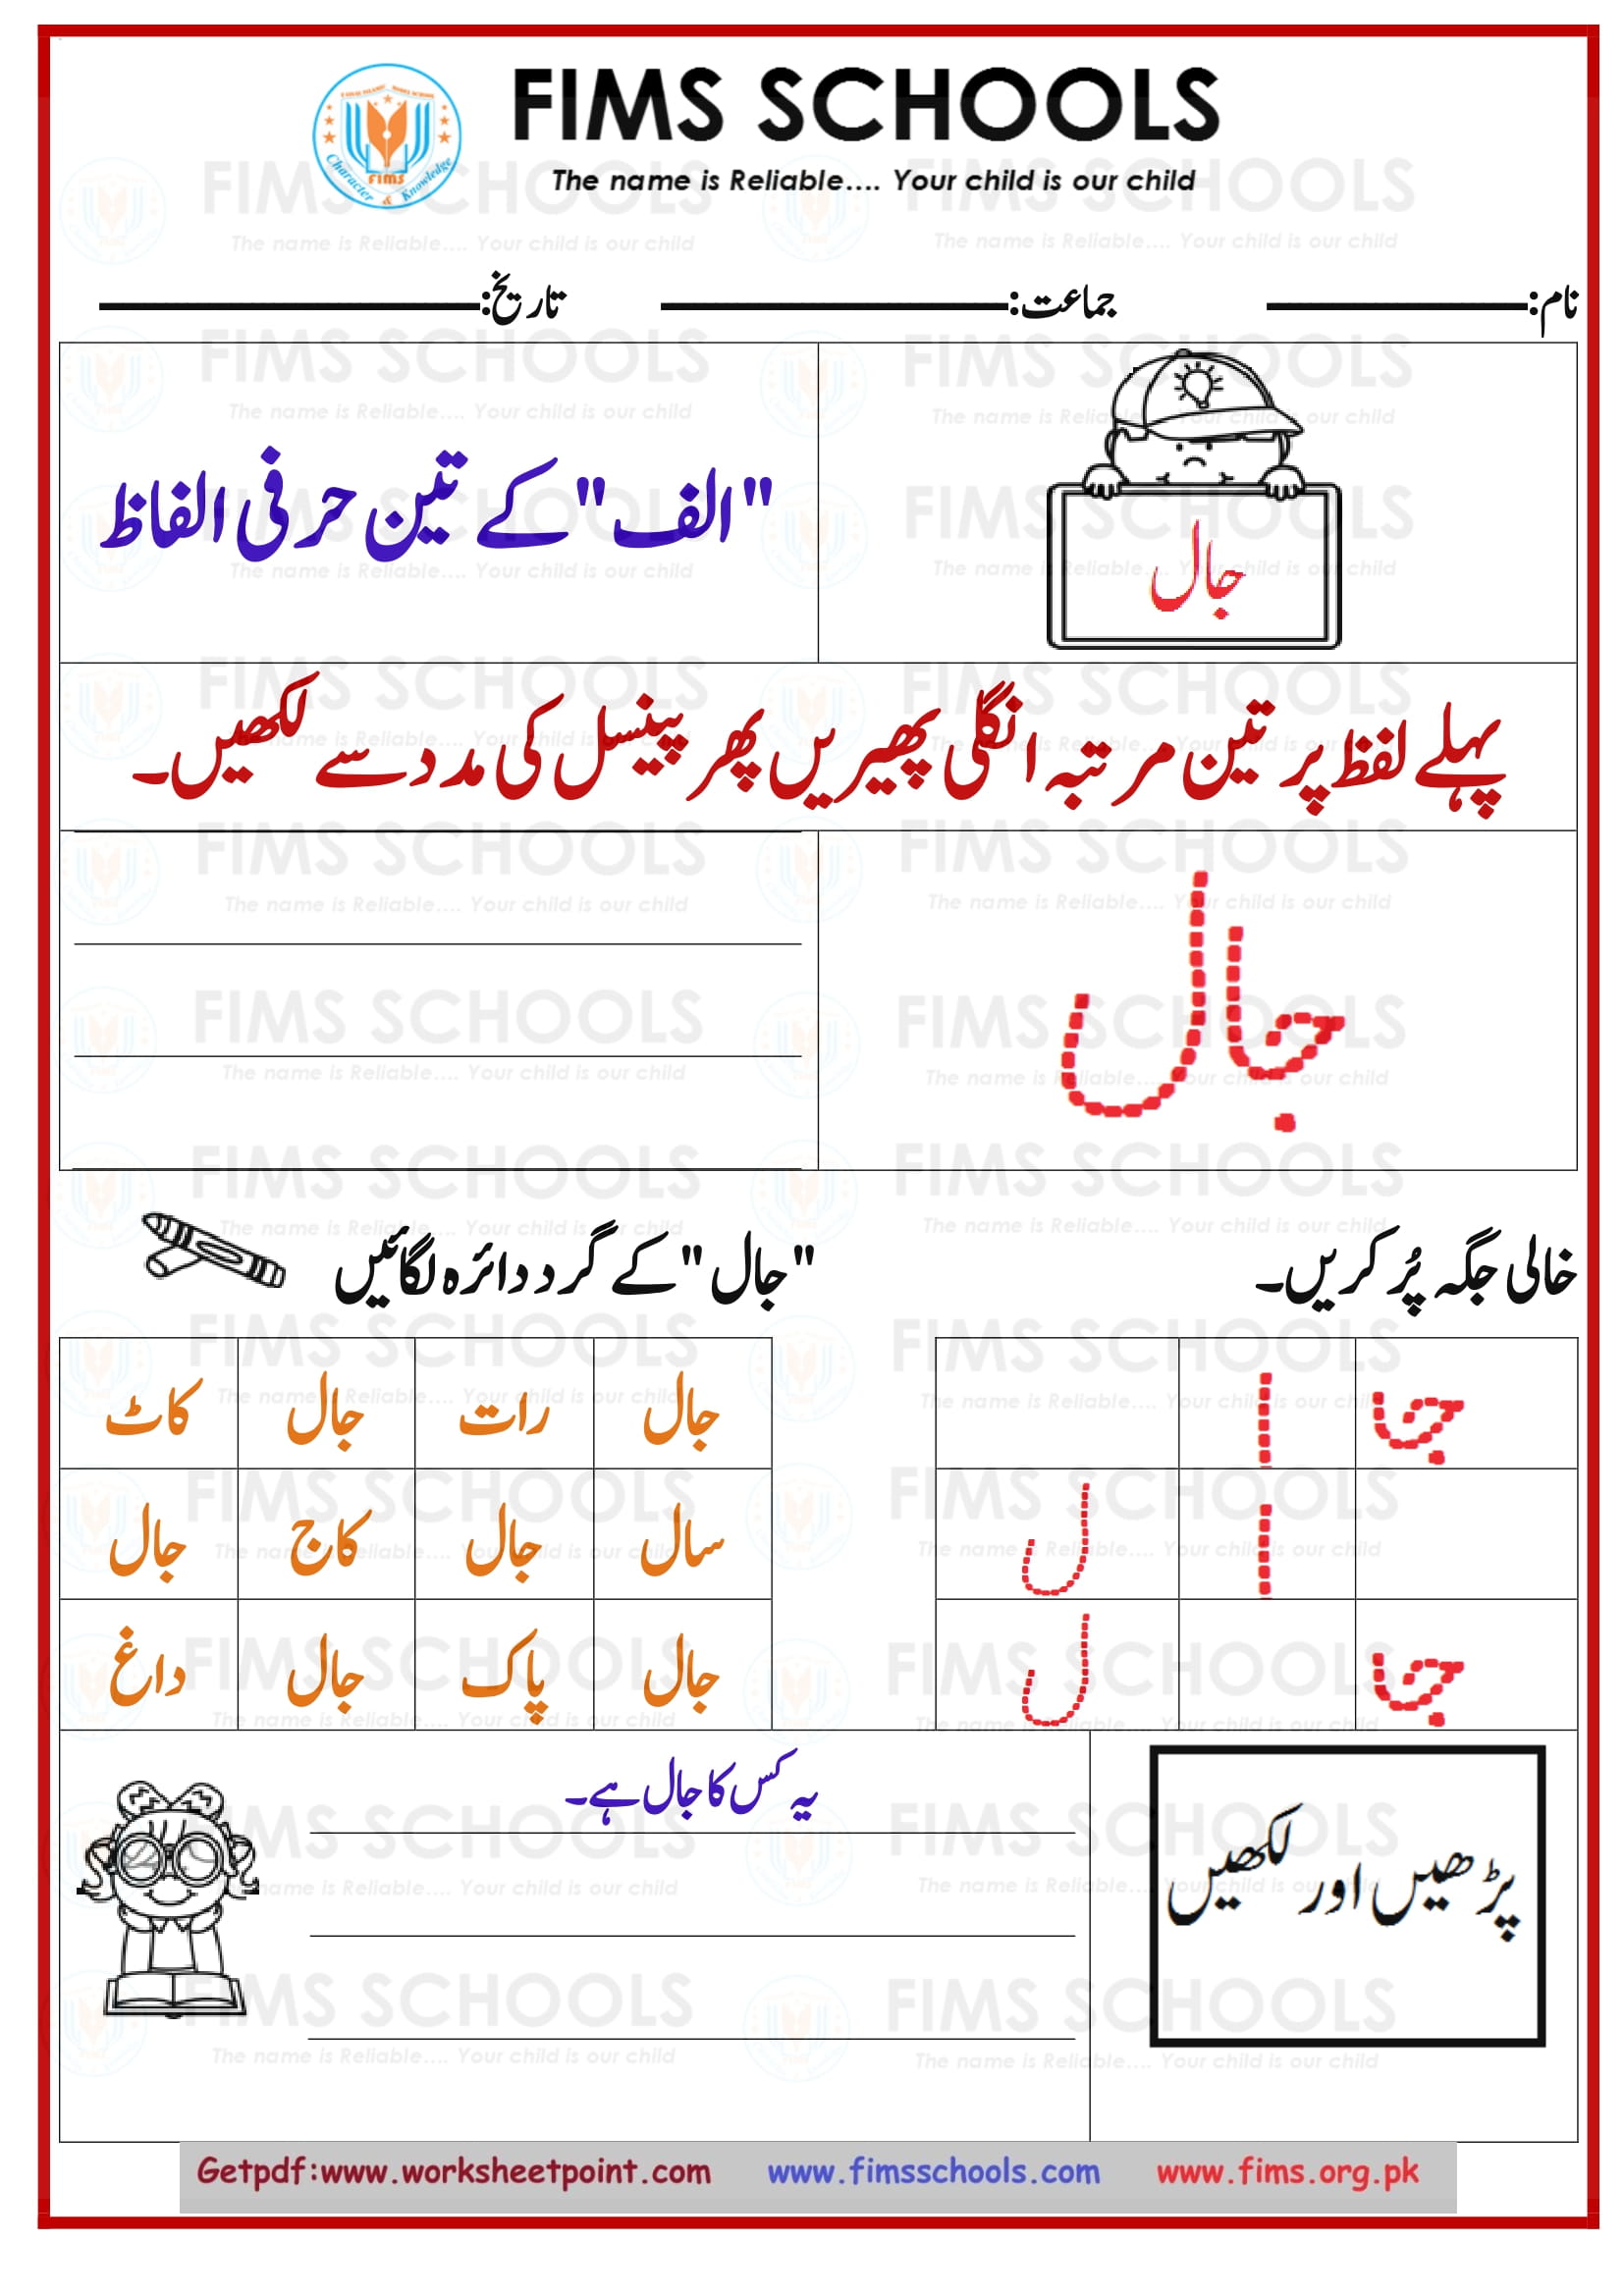 FIMS SCHOOLS
The name is Reliable.... Your child is our child
FIMS
Character & Knowledge
نام: جماعت: تاریخ:
جال
"الف" کے تین حرفی الفاظ
پہلے لفظ پر تین مرتبہ انگلی پھیریں پھر پینسل کی مدد سے لکھیں۔
جال
خالی جگہ پُر کریں۔
جا ا
ا ل
جا ل
"جال" کے گرد دائرہ لگائیں
جال رات جال کاٹ
سال جال کاج جال
جال پاک جال داغ
پڑھیں اور لکھیں
یہ کس کا جال ہے۔
Getpdf:www.worksheetpoint.com www.fimsschools.com www.fims.org.pk